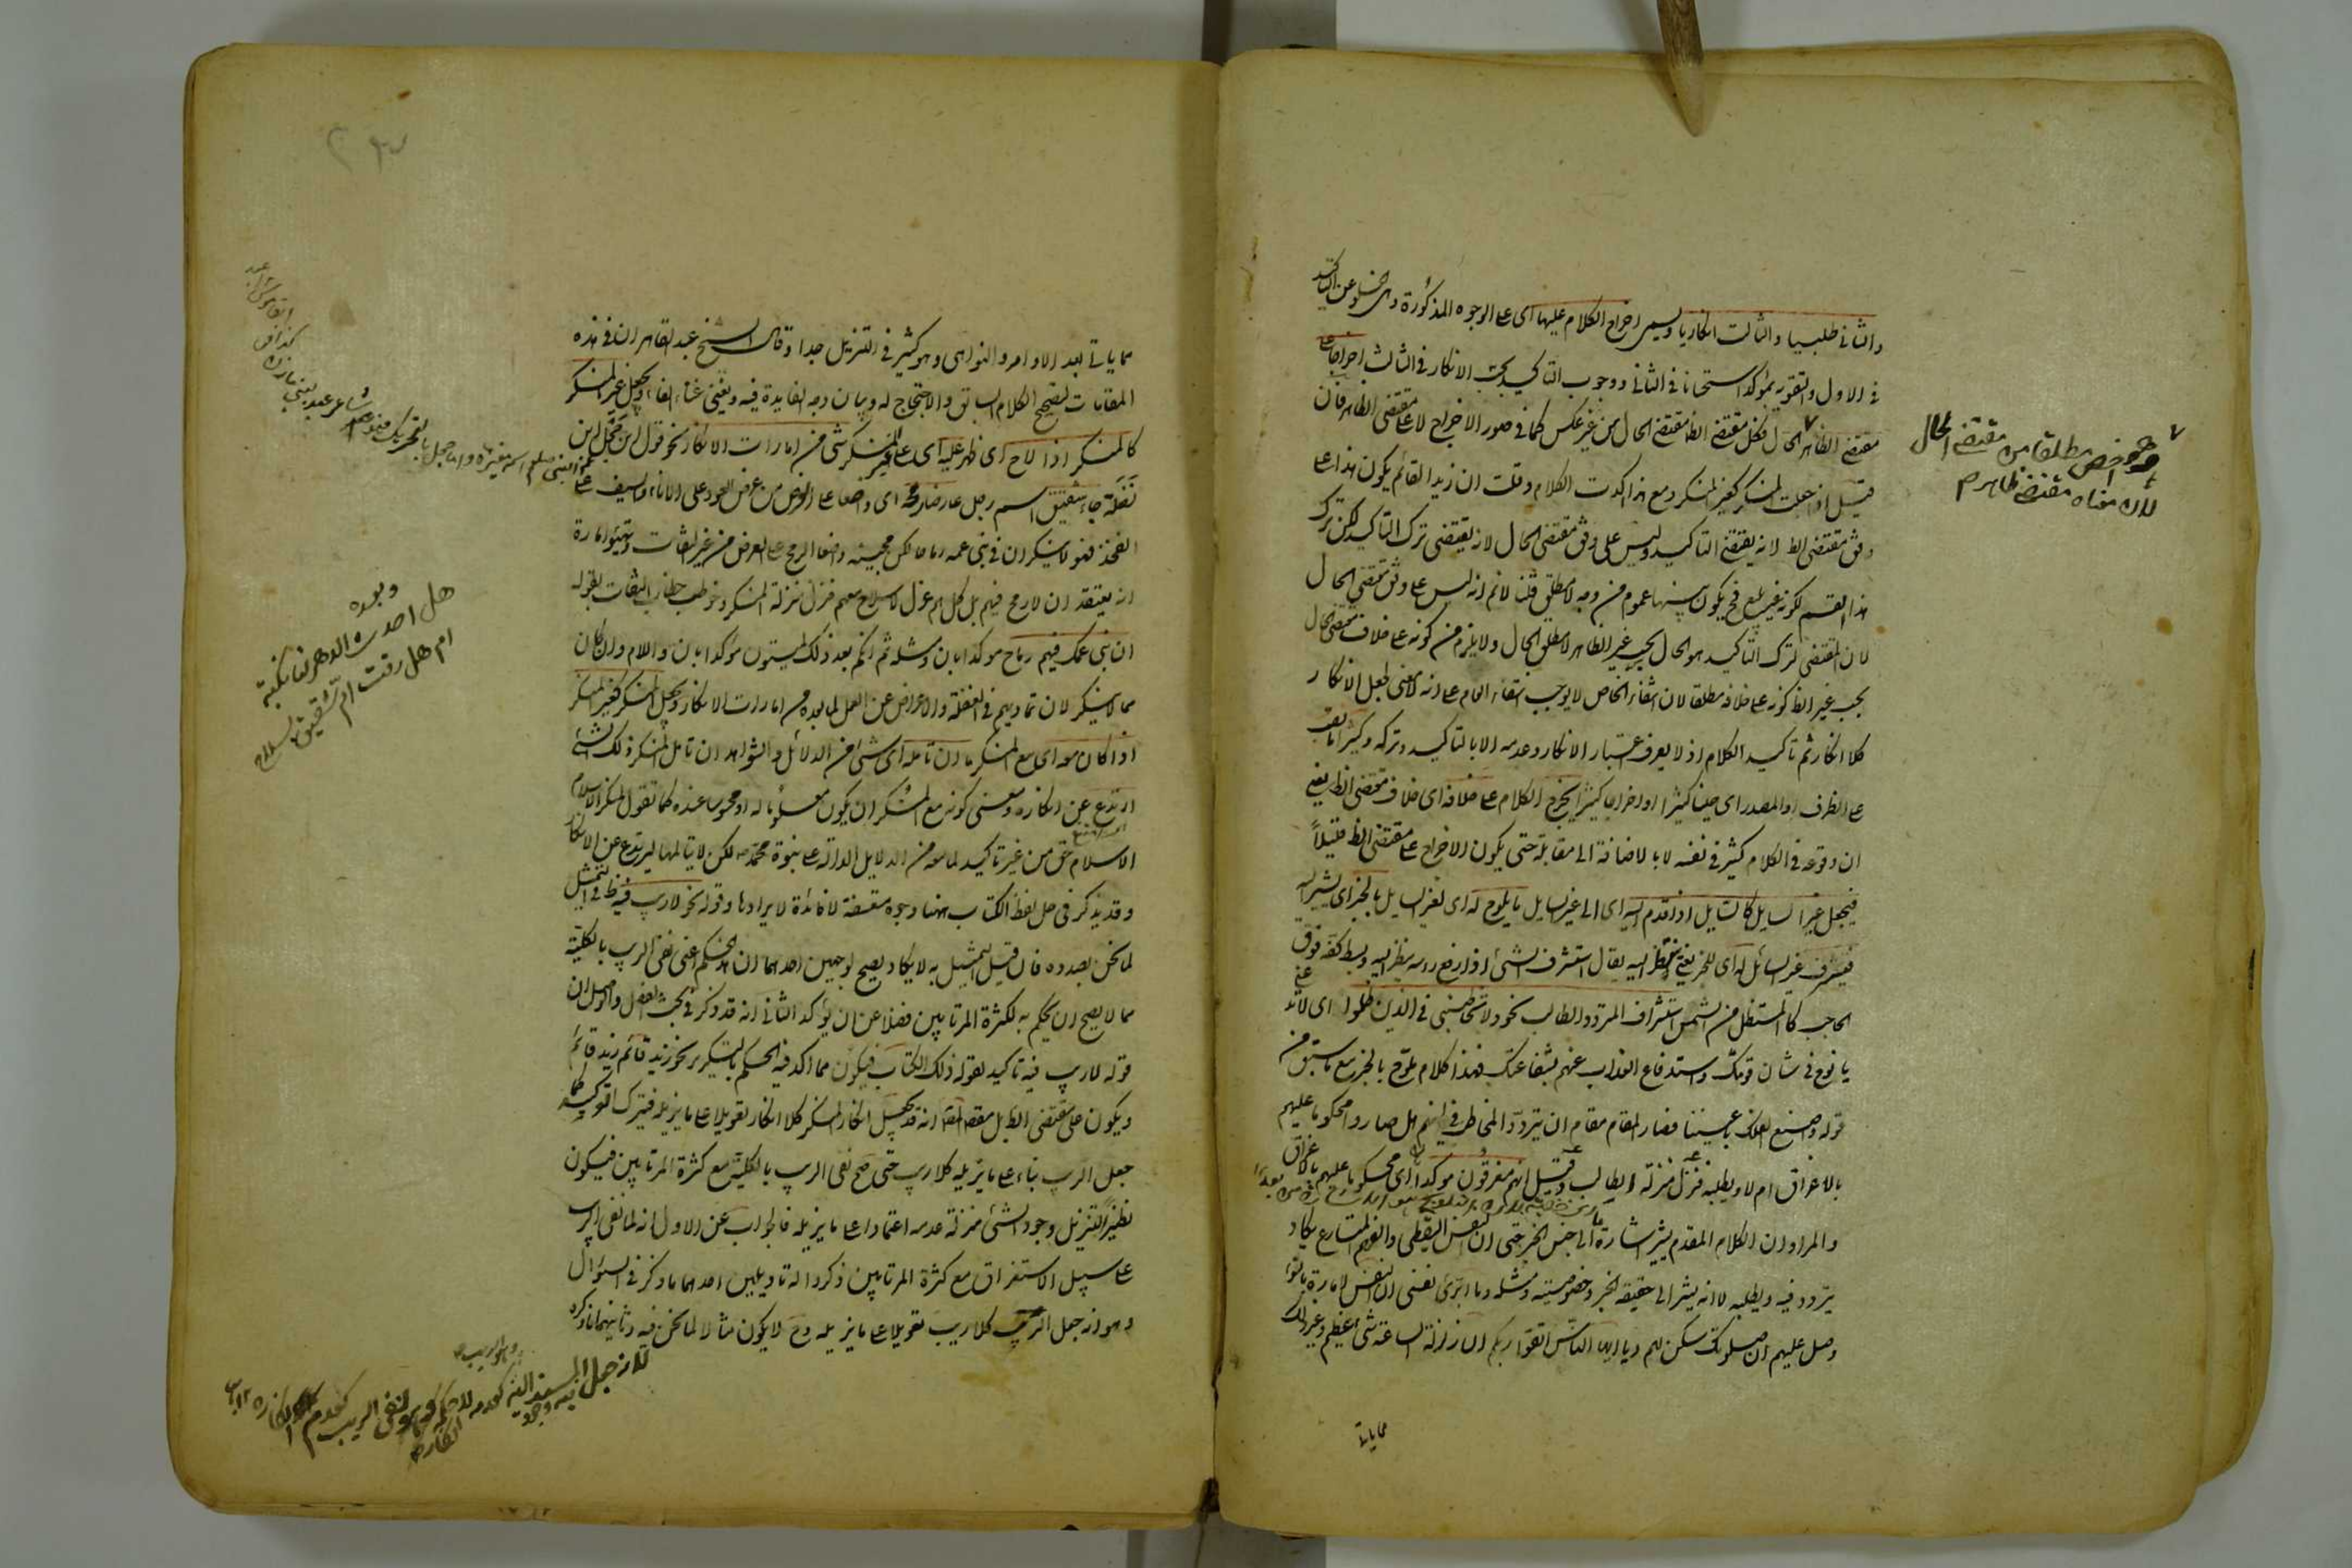 والثانى طلبيا والثالث انكاريا ويسمى اخراج الكلام عليها اى على الوجوه المذكورة وهى الخلو عن التاكيد
فى الاول والتقوية بمؤكد استحسانا فى الثانى ووجوب التاكيد بحسب الانكار فى الثالث اخراجا على
مقتضى الظاهر فكل مقتضى الظ مقتضى الحال من غير عكس كما فى صور الاخراج لا على مقتضى الظاهر فان
قيل اذا جعلت المنكر كغير المنكر ومع هذا اكدت الكلام وقلت ان زيدا لقائم يكون هذا على
وفق مقتضى الظ لانه يقتضى التاكيد وليس على وفق مقتضى الحال لانه يقتضى ترك التاكيد لكن ترك
هذا القسم لكونه غير بليغ فح يكون بينهما عموم من وجه لا مطلق قلنا لانم انه ليس على وفق مقتضى الحال
لان المقتضى لترك التاكيد هو الحال بحسب غير الظاهر لا مطلق الحال ولا يلزم من كونه على خلاف مقتضى الحال
بحسب غير الظ كونه على خلافه مطلقا لان انتفاء الخاص لا يوجب انتفاء العام على انه لا معنى لجعل الانكار
كلا انكار ثم تاكيد الكلام اذ لا يعرف اعتبار الانكار وعدمه الا بالتاكيد وتركه وكثيرا ما نصب
على الظرف او المصدر اى حينا كثيرا او اخراجا كثيرا يخرج الكلام على خلافه اى خلاف مقتضى الظ يعنى
ان وقوعه فى الكلام كثير فى نفسه لا بالاضافة الى مقابله حتى يكون الاخراج على مقتضى الظ قليلا
فيجعل غير السايل كالسايل اذا قدم اليه اى الى غير السايل ما يلوح له اى لغير السايل بالخبر اى يشير اليه
فيستشرف غير السائل له اى للخبر يعنى ينظر اليه يقال استشرف الشئ اذا رفع راسه ينظر اليه وبسط كفه فوق
الحاجب كالمستظل من الشمس استشراف المتردد الطالب نحو ولا تخاطبنى فى الذين ظلموا اى لا تدعنى
يا نوح فى شان قومك واستدفاع العذاب عنهم بشفاعتك فهذا كلام يلوح بالخبر مع ما سبق من
قوله واصنع الفلك باعيننا فصار المقام مقام ان يتردد المخاطب فى انهم هل صاروا محكوما عليهم
بالاغراق ام لا ويطلبه فنزل منزلة الطالب وقيل انهم مغرقون مؤكدا اى محكوما عليهم بالاغراق
والمراد ان الكلام المقدم يشير اشارة ما الى جنس الخبر حتى ان النفس اليقظى والفهم المتسارع يكاد
يتردد فيه ويطلبه لا انه يشير الى حقيقة الخبر وخصوصيته ومثله وما ابرئ نفسى ان النفس لامارة بالسوء
وصل عليهم ان صلوتك سكن لهم ويا ايها الناس اتقوا ربكم ان زلزلة الساعة شئ عظيم وغير ذلك
مما ياتى
وهو اخص مطلقا من مقتضى الحال
لان معناه مقتضى ظاهر
مما ياتى بعد الاوامر والنواهى وهو كثير فى التنزيل جدا وقال الشيخ عبد القاهر ان فى هذه
المقامات لتصحيح الكلام السابق والاحتجاج له وبيان وجه الفايدة فيه ويغنى غناء الفاء ويجعل غير المنكر
كالمنكر اذا لاح اى ظهر عليه اى على غير المنكر شئ من امارات الانكار نحو قول ابن حجل ابن
نضلة جاء شقيق اسم رجل عارضا رمحه اى واضعا على العرض من عرض العود على الاناء والسيف على
الفخذ فهو لا ينكر ان فى بنى عمه رماحا لكن مجيئه واضعا الرمح على العرض من غير التفات وتهيئو امارة
انه يعتقد ان لا رمح فيهم بل كلهم عزل لا سلاح معهم فنزل منزلة المنكر وخوطب خطاب التفات بقوله
ان بنى عمك فيهم رماح مؤكدا بان ومثله ثم انكم بعد ذلك لميتون مؤكدا بان واللام وان كان
مما لا ينكر لان تماديهم فى الغفلة والاعراض عن العمل لما بعده من امارات الانكار ويجعل المنكر كغير المنكر
اذا كان معه اى مع المنكر ما ان تامله اى شئ من الدلائل والشواهد ان تامل المنكر ذلك الشئ
ارتدع عن انكاره ومعنى كونه مع المنكر ان يكون معلوما له او محسوسا عنده كما تقول لمنكر الاسلام
الاسلام حق من غير تاكيد لما معه من الدلايل الدالة على نبوة محمد ص لكن لا يتاملها ليرتدع عن الانكار
وقد يذكر فى حل لفظ الكتاب ههنا وجوه متعسفة لا فائدة لايرادها وقوله نحو لا ريب فيه ظ فى التمثيل
لما نحن بصدده فان قيل التمثيل به لا يكاد يصح لوجهين احدهما ان هذا الحكم اعنى نفى الريب بالكلية
مما لا يصح ان يحكم به لكثرة المرتابين فضلا عن ان يؤكد الثانى انه قد ذكر فى بحث الفصل والوصل ان
قوله لا ريب فيه تاكيد لقوله ذلك الكتاب فيكون مما اكد فيه الحكم بالتكرير نحو زيد قائم زيد قائم
ويكون على مقتضى الظ بل مقصد المص انه قد يجعل انكار المنكر كلا انكار تعويلا على ما يزيله فيترك التوكيد كما
جعل الريب بناء على ما يزيله كلا ريب حتى صح نفى الريب بالكلية مع كثرة المرتابين فيكون
نظيرا لتنزيل وجود الشئ منزلة عدمه اعتمادا على ما يزيله فالجواب عن الاول انه لما نفى الريب
على سبيل الاستغراق مع كثرة المرتابين ذكروا له تاويلين احدهما ما ذكر فى السؤال
وهو انه جعل الريب كلا ريب تعويلا على ما يزيله وح لا يكون مثالا لما نحن فيه وثانيهما ما ذكره
وبعده
هل احدث الدهر لنا نكبة
ام هل رقت ام شقيق سلاح